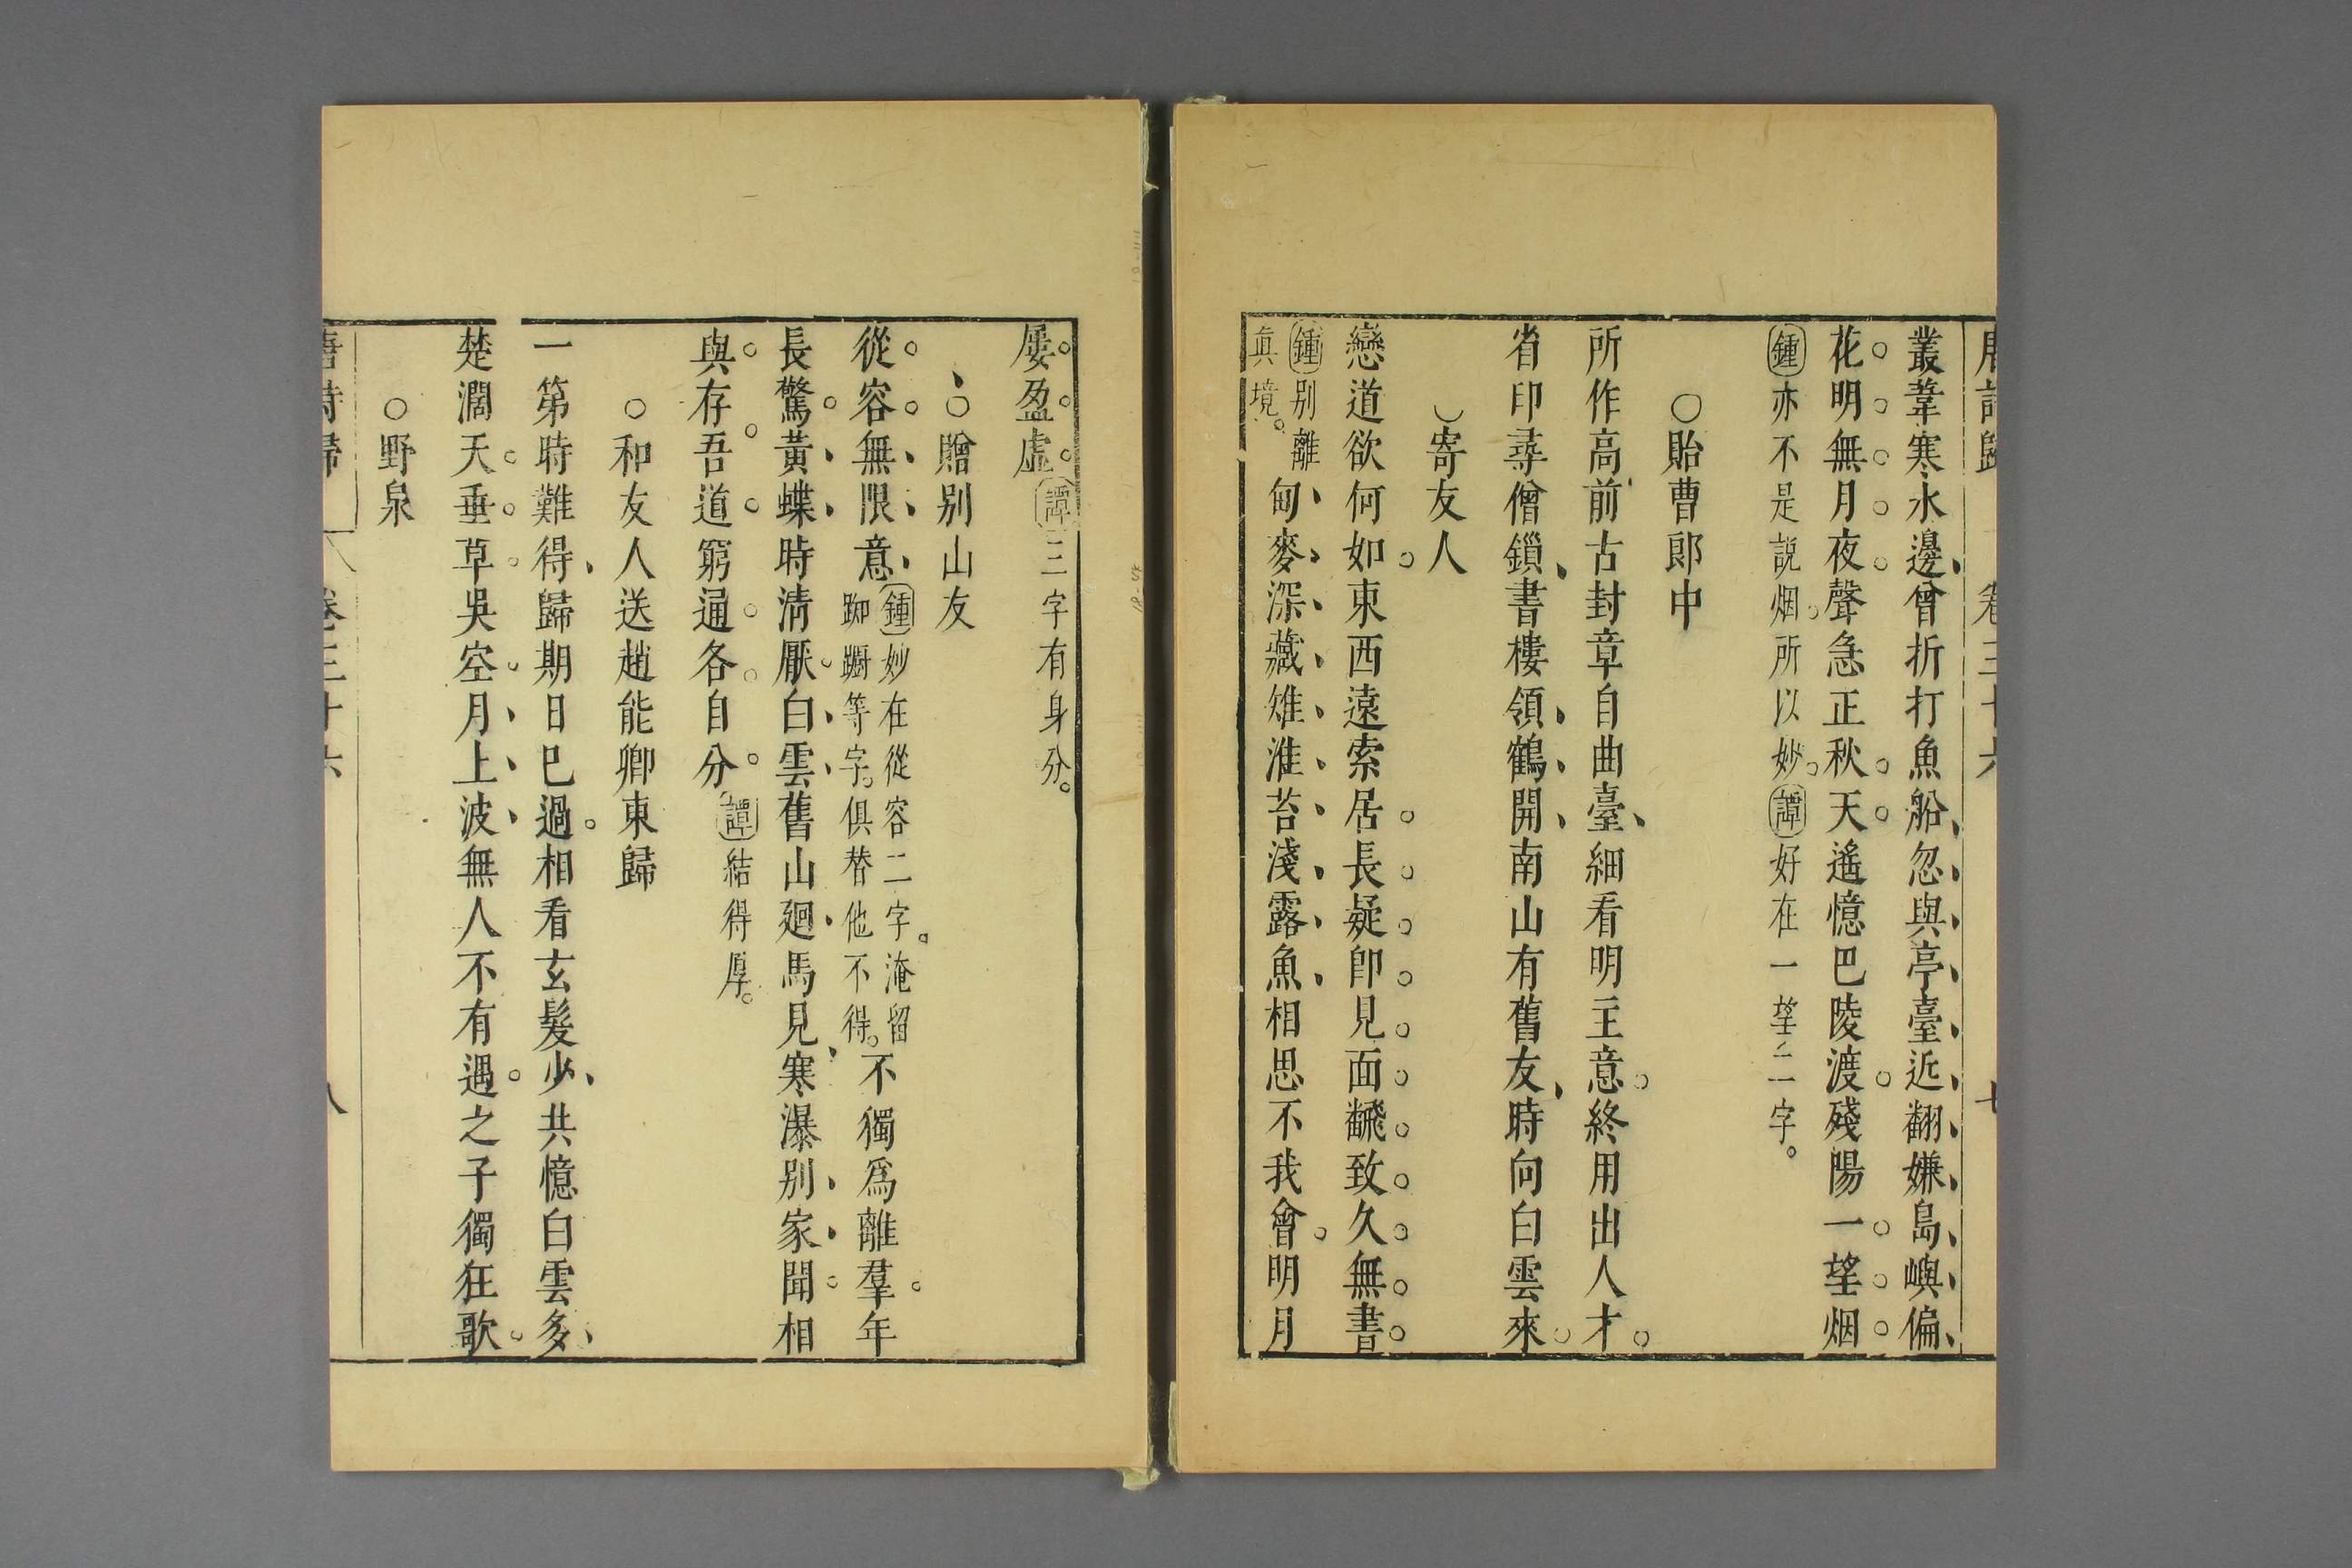 唐詩歸 卷三十六 七
叢葦寒水邊曾折打魚船忽與亭臺近翻嫌島嶼偏
花明無月夜聲急正秋天遙憶巴陵渡殘陽一望烟
鍾亦不是說烟所以妙譚好在一望二字
○貽曹郎中
所作高前古封章自曲臺細看明主意終用出人才
省印尋僧鎖書樓領鶴開南山有舊友時向白雲來
寄友人
戀道欲何如東西遠索居長疑卽見面翻致久無書
鍾別離
眞境
甸麥深藏雉淮苔淺露魚相思不我會明月
屢盈虛譚三字有身分
○贈別山友
從容無限意鍾妙在從容二字淹留
踟躕等字俱替他不得不獨爲離羣年
長驚黃蝶時清厭白雲舊山廻馬見寒瀑別家聞相
與存吾道窮通各自分譚結得厚
○和友人送趙能卿東歸
一第時難得歸期日已過相看玄髮少共憶白雲多
楚濶天垂草吳空月上波無人不有遇之子獨狂歌
○野泉
唐詩歸 卷三十六 八